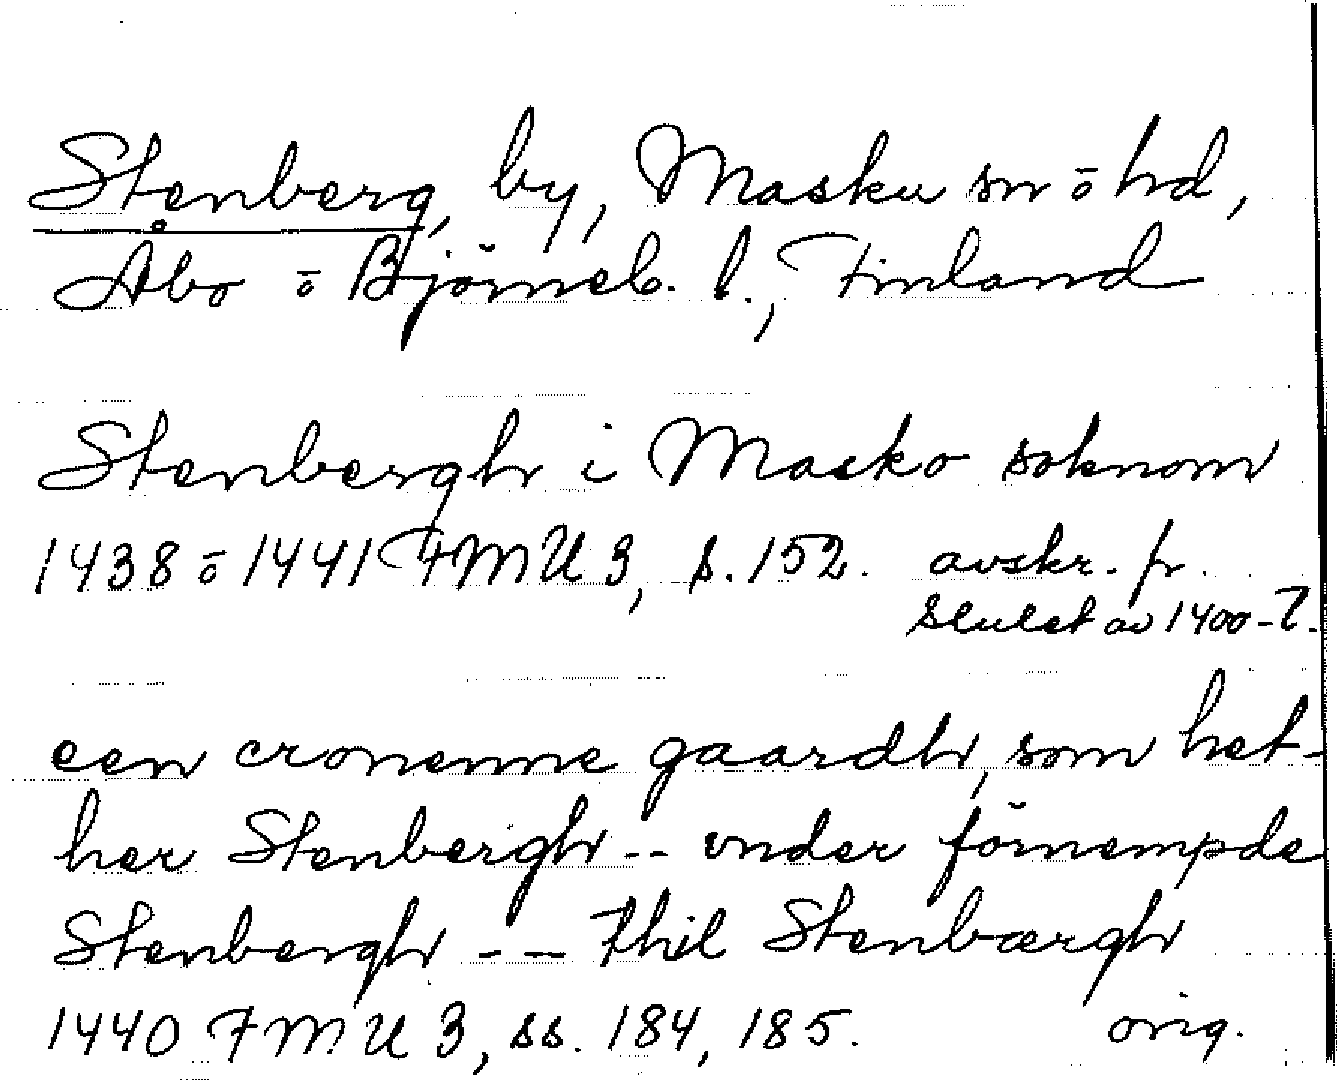 Stenberg, by, Masku sn o hd,
Åbo o Björneb. l., Finland
Stenbergh i Masko soknom
1438 o 1441 FMU 3, s. 152. avskr. fr.
slutet av 1400-t.
een cronenne gaardh, som het-
her Stenbergh -- vnder förnempde
Stenbergh -- thil Stenbærgh
1440 FMU 3, ss. 184, 185. orig.